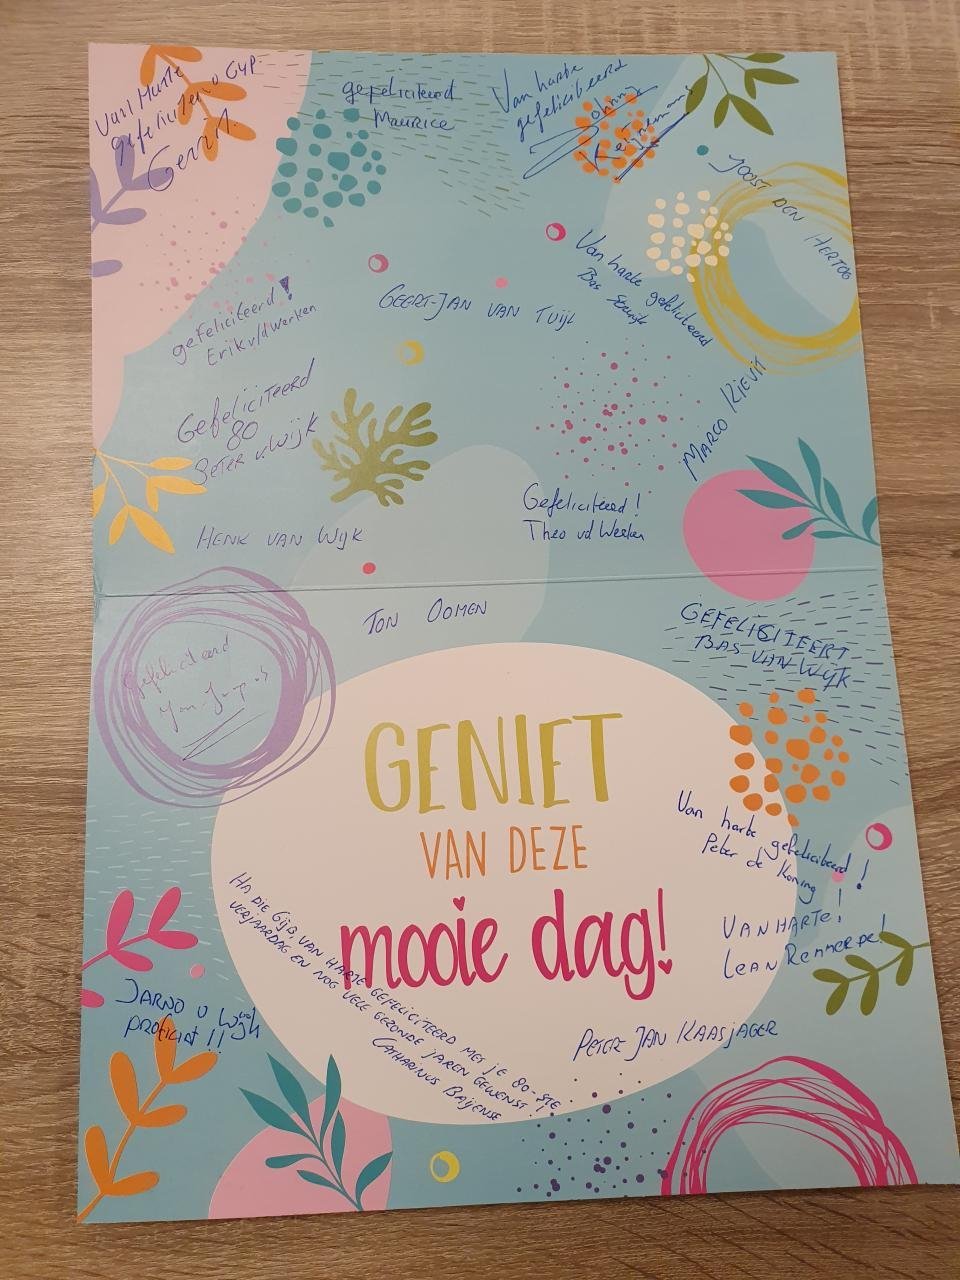 Van Harte
gefeliciteerd
Gerrit.
gefeliciteerd
Maurice
Van harte
gefeliciteerd
Johnny
JOOST DEN HERTOG
Van harte gefeliciteerd
Bas
GEERT-JAN VAN TUIJL
gefeliciteerd!
Erik vd Werken
GEFELICITEERD
80
PETER v. WIJK
MARCO KIEVIT
Gefeliciteerd!
Theo vd Werken
HENK VAN WIJK
TON OOMEN
GEFELICITEERT
BAS VAN WIJK
Gefeliciteerd
GENIET
VAN DEZE
mooie dag!
Van harte gefeliciteerd!
Peter de Koning
VAN HARTE!
HA DIE GIJB, VAN HARTE GEFELICITEERD MET JE 80-STE
VERJAARDAG EN NOG VELE GEZONDE JAREN GEWENST!!
CATHARINUS BAIJENSE
JARNO v Wijk
PROFICIAT!!
PETER-JAN KAASJAGER